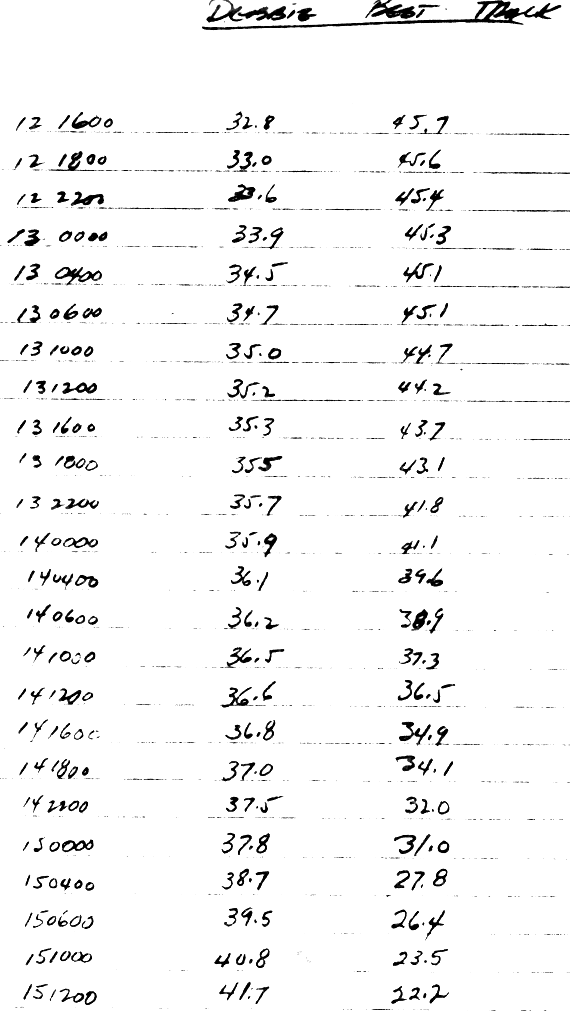 DEBBIE BEST TRACK
12 1600 32.8 45.7
12 1800 33.0 45.6
12 2200 33.6 45.4
13 0000 33.9 45.3
13 0400 34.5 45.1
13 0600 34.7 45.1
13 1000 35.0 44.7
13 1200 35.2 44.2
13 1600 35.3 43.7
13 1800 355 43.1
13 2200 35.7 41.8
14 0000 35.9 41.1
14 0400 36.1 39.6
14 0600 36.2 38.9
14 1000 36.5 37.3
14 1200 36.6 36.5
14 1600 36.8 34.9
14 1800 37.0 34.1
14 2200 37.5 32.0
15 0000 37.8 31.0
15 0400 38.7 27.8
15 0600 39.5 26.4
15 1000 40.8 23.5
15 1200 41.7 22.2